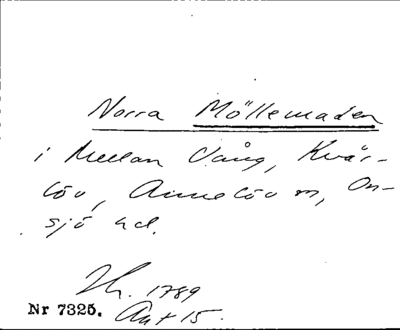 Norra Möllemaden
i Mellan Vång, Kvär-
löv, Annelöv sn, On-
sjö hd.
Zh. 1789
Akt 15.
Nr 7325.